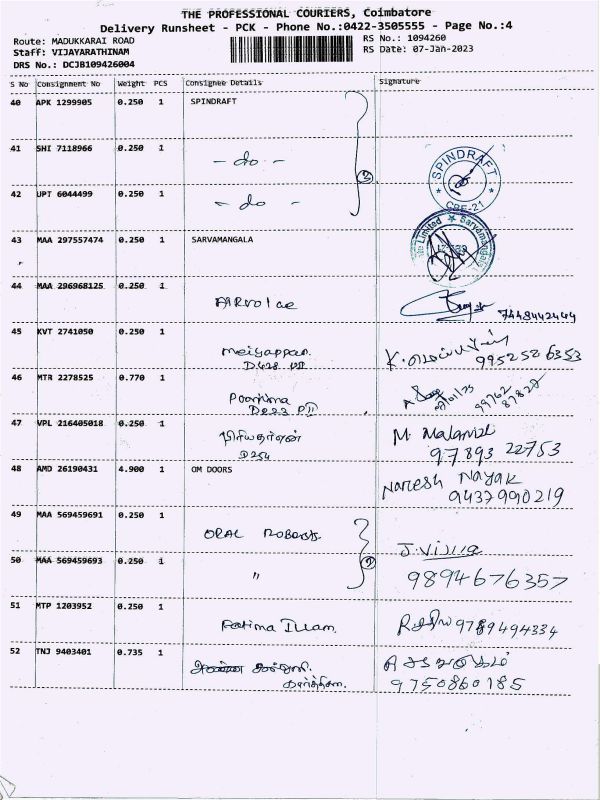 THE PROFESSIONAL COURIERS, Coimbatore
Delivery Runsheet - PCK - Phone No.:0422-3505555 - Page No.:4
Route: MADUKKARAI ROAD
RS No.: 1094260
Staff: VIJAYARATHINAM
RS Date: 07-Jan-2023
DRS No.: DCJB109426004
S No Consignment No Weight PCS Consignee Details Signature
40 APK 1299905 0.250 1 SPINDRAFT
41 SHI 7118966 0.250 1 - do -
SPINDRAFT
3
42 UPT 6044499 0.250 1 - do -
CBE-21
43 MAA 297557474 0.250 1 SARVAMANGALA
Limited ★ Sarvamangala
44 MAA 296968125 0.250 1
7448442444
45 KVT 2741050 0.250 1 Meiyappan
D428 PII 9952526353
46 MTR 2278525 0.770 1 Poornima
D223 PII
99762
87827
47 VPL 216405018 0.250 1 M. Malarvizhi
D254 97893 22753
48 AMD 26190431 4.900 1 OM DOORS Naresh Nayak
9437990219
49 MAA 569459691 0.250 1 ORAL Roberts
J. Vijiya
50 MAA 569459693 0.250 1 " 2 9894676357
51 MTP 1203952 0.250 1 Fatima Illam. 9789494334
52 TNJ 9403401 0.735 1
9750860185